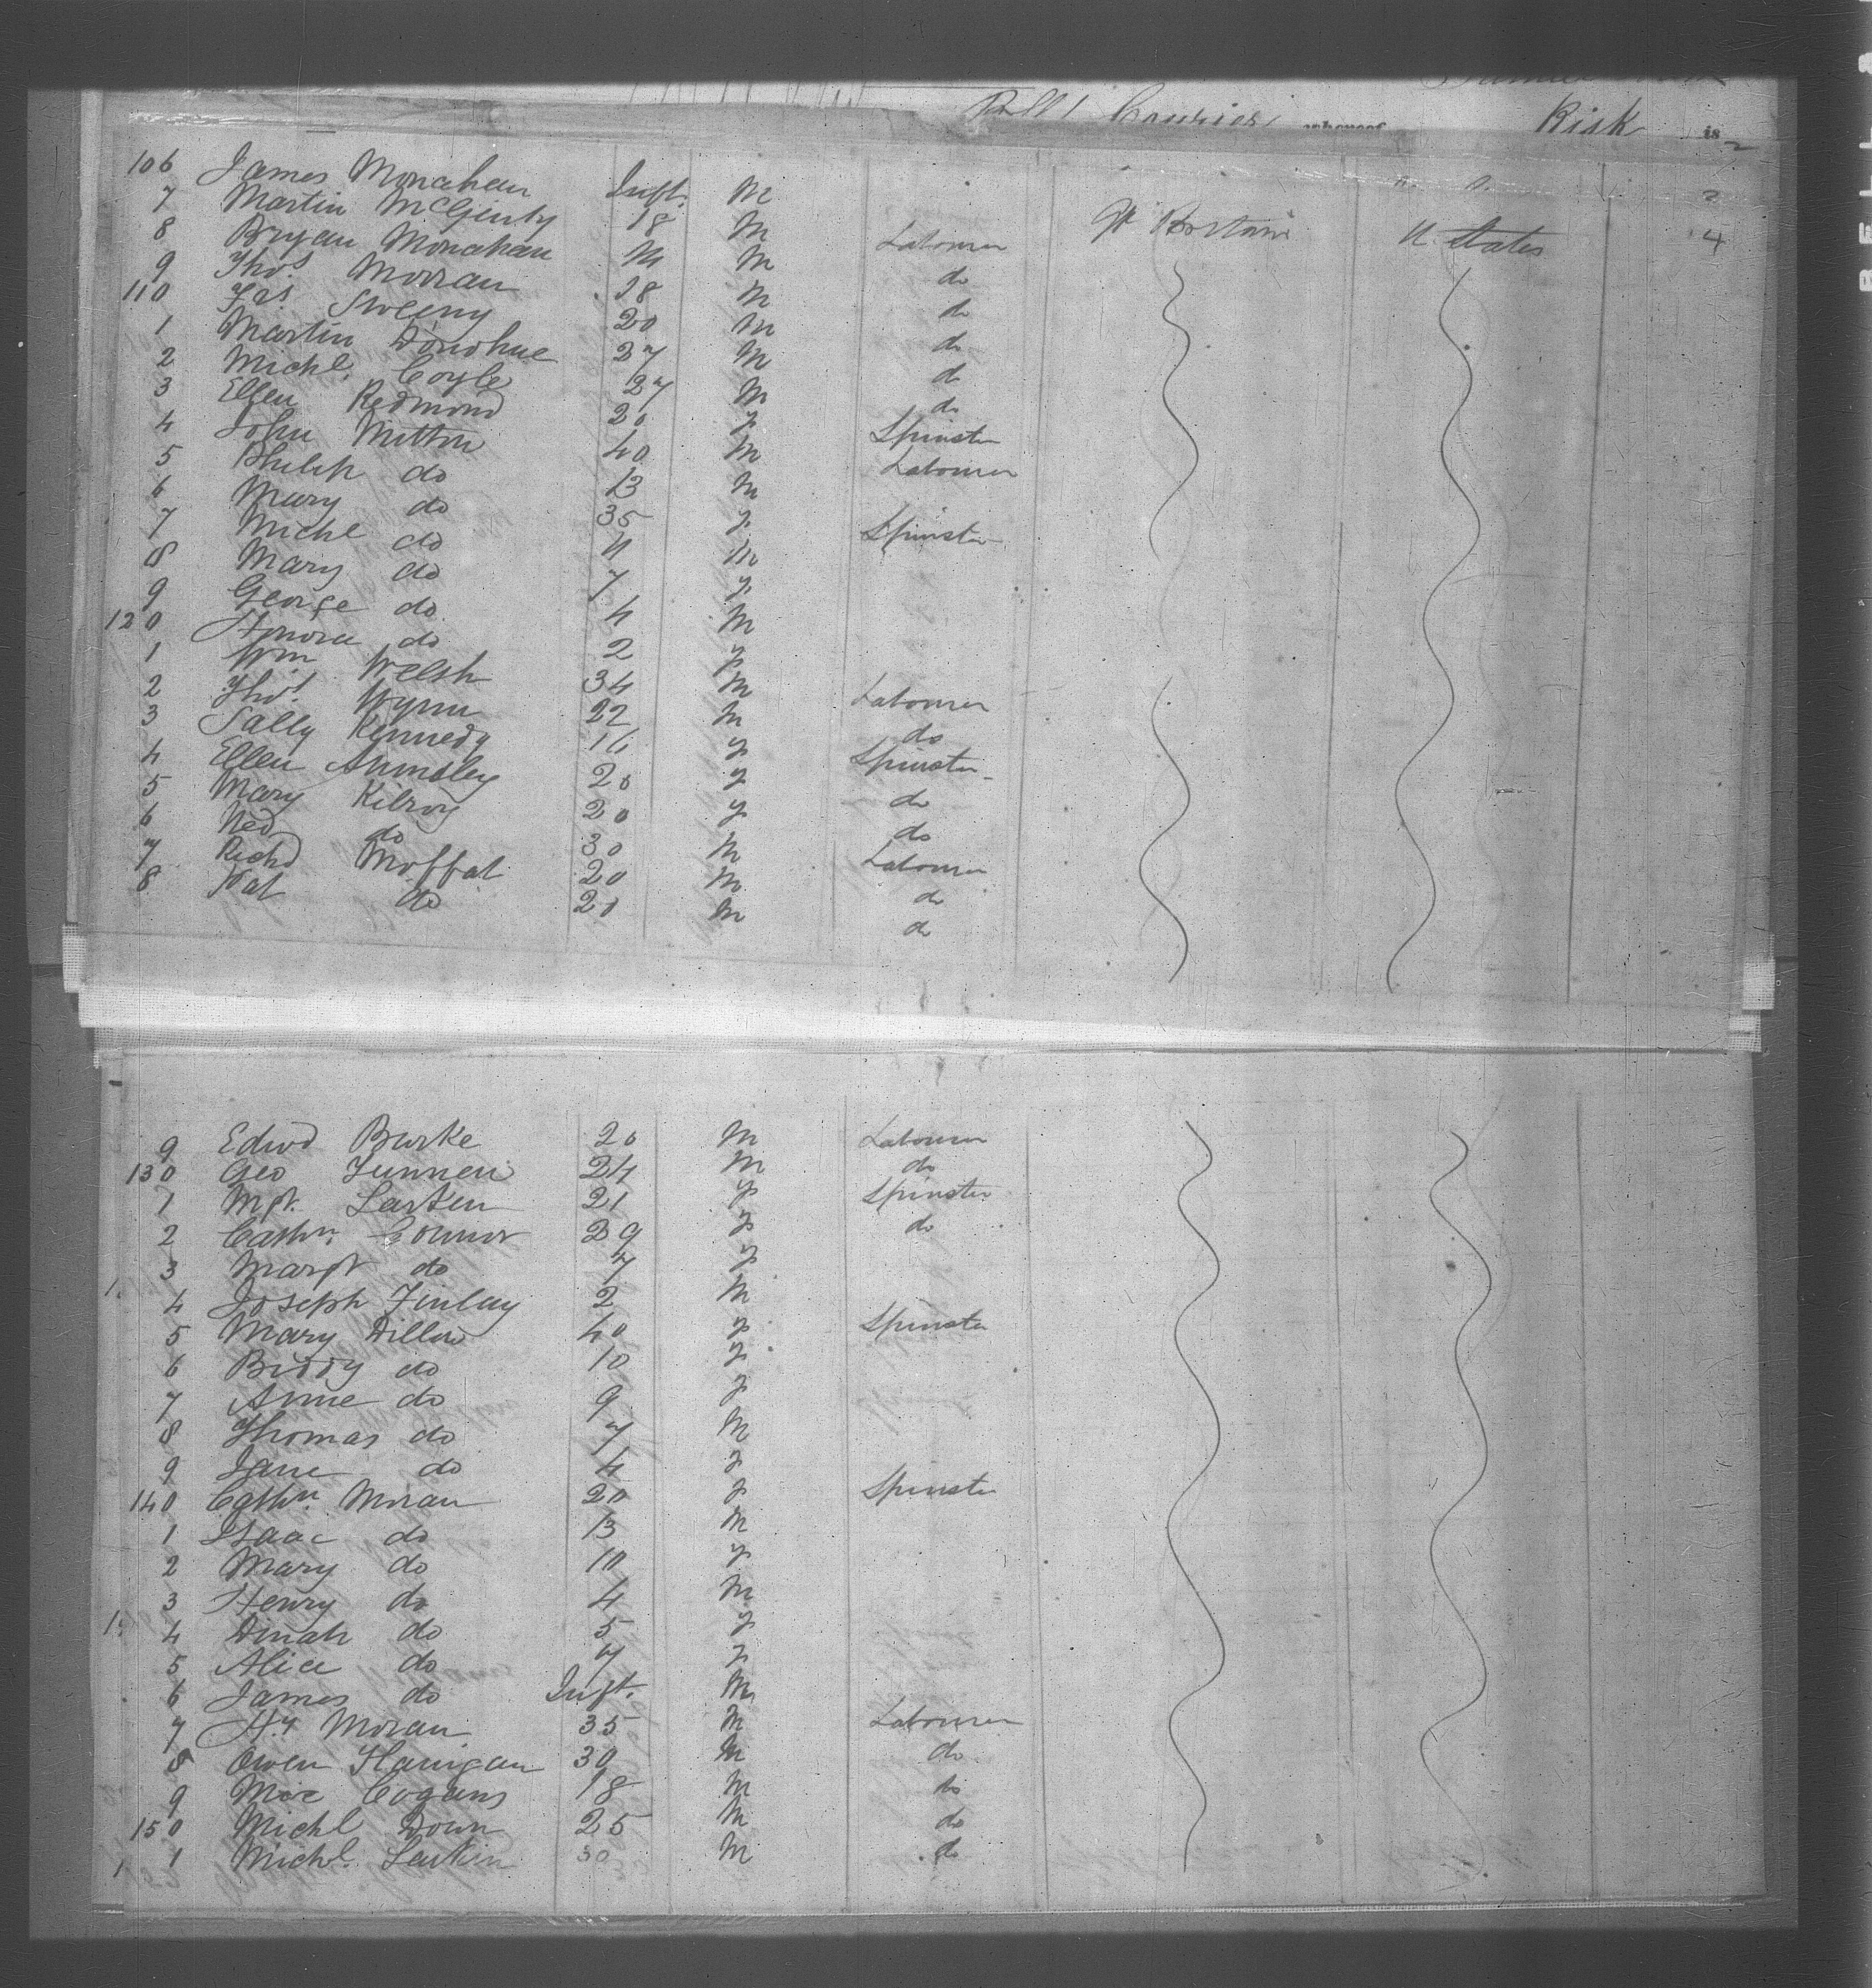 Risk is
106 James Monahan Inft. M
7 Martin McGinty 18 M Labourer Gt Brittain U. States 4
8 Bryan Monahan M M do
9 Thos. Morran 18 M do
110 Jas Sweeny 20 M do
1 Martin Donohue 27 M do
2 Michl. Coyle 27 M do
3 Ellen Redmond 20 F Spinster
4 John Mitton 40 M Labourer
5 Philip do 13 M
6 Mary do 35 F Spinster
7 Michl do 11 M
8 Mary do 7 F
9 George do 4 M
120 Honora do 2 F
1 Wm Welsh 34 M Labourer
2 Thos. Wynn 22 M do
3 Sally Kennedy 16 F Spinster
4 Ellen Annesley 20 F do
5 Mary Kilroy 20 F do
6 Ned do 30 M Labourer
7 Richd Moffat 20 M do
8 Pat do 21 M do
9 Edwd Burke 20 M Labourer
130 Geo Funnen 24 M do
1 Mgt. Larken 21 F Spinster
2 Cathn. Connor 29 F do
3 Margt do 7 F
4 Joseph Finlay 2 M
5 Mary Dillon 40 F Spinster
6 Biddy do 10 F
7 Anne do 9 F
8 Thomas do 7 M
9 Jane do 4 F
140 Cathn Moran 20 F Spinster
1 Isaac do 13 M
2 Mary do 10 F
3 Henry do 4 M
4 Dinah do 5 F
5 Alice do 7 F
6 James do Inft. M
7 Hy Moran 35 M Labourer
8 Owen Flanigan 30 M do
9 Mic Cogans 18 M do
150 Michl Down 25 M do
1 Michl. Larkin 30 M do